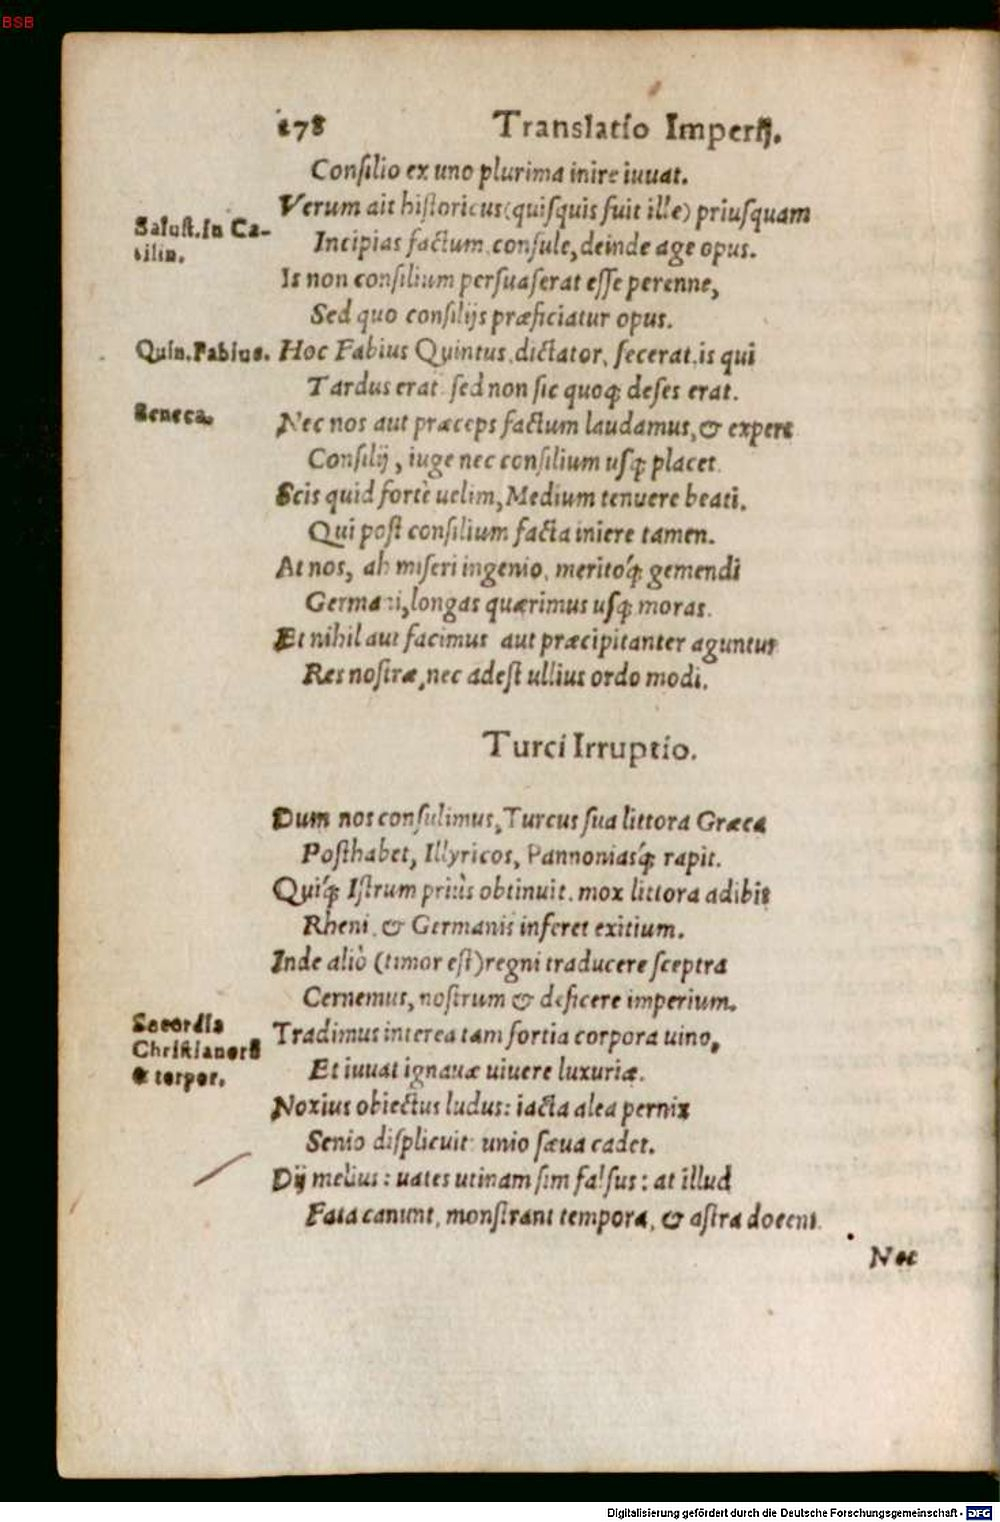 BSB
178 Translatio Imperij.
Consilio ex uno plurima inire iuuat.
Verum ait historicus (quisquis fuit ille) priusquam
Salust. in Ca-
tilin.
Incipias factum, consule, deinde age opus.
Is non consilium persuaserat esse perenne,
Sed quo consilijs præficiatur opus.
Quin. Fabius. Hoc Fabius Quintus, dictator, fecerat, is qui
Tardus erat, sed non sic quoq; deses erat.
Seneca. Nec nos aut præceps factum laudamus, & expers
Consilij, iuge nec consilium usq; placet.
Scis quid fortè uelim, Medium tenuere beati.
Qui post consilium facta iniere tamen.
At nos, ah miseri ingenio, meritoq́; gemendi
Germani, longas quærimus usq; moras.
Et nihil aut facimus aut præcipitanter aguntur
Res nostræ, nec adest ullius ordo modi.
Turci Irruptio.
Dum nos consulimus, Turcus sua littora Græca
Posthabet, Illyricos, Pannoniasq́; rapit.
Quiq́; Istrum priùs obtinuit, mox littora adibit
Rheni, & Germanis inferet exitium.
Inde aliò (timor est) regni traducere sceptra
Cernemus, nostrum & deficere imperium.
Secordia
Christianorũ
& torpor.
Tradimus interea tam fortia corpora uino,
Et iuuat ignauæ uiuere luxuriæ.
Noxius obiectus ludus: iacta alea pernix
Senio displicuit: unio sæua cadet.
Dij melius: uates utinam sim falsus: at illud
Fata canunt, monstrant tempora, & astra docent.
Nec
Digitalisierung gefördert durch die Deutsche Forschungsgemeinschaft - DFG